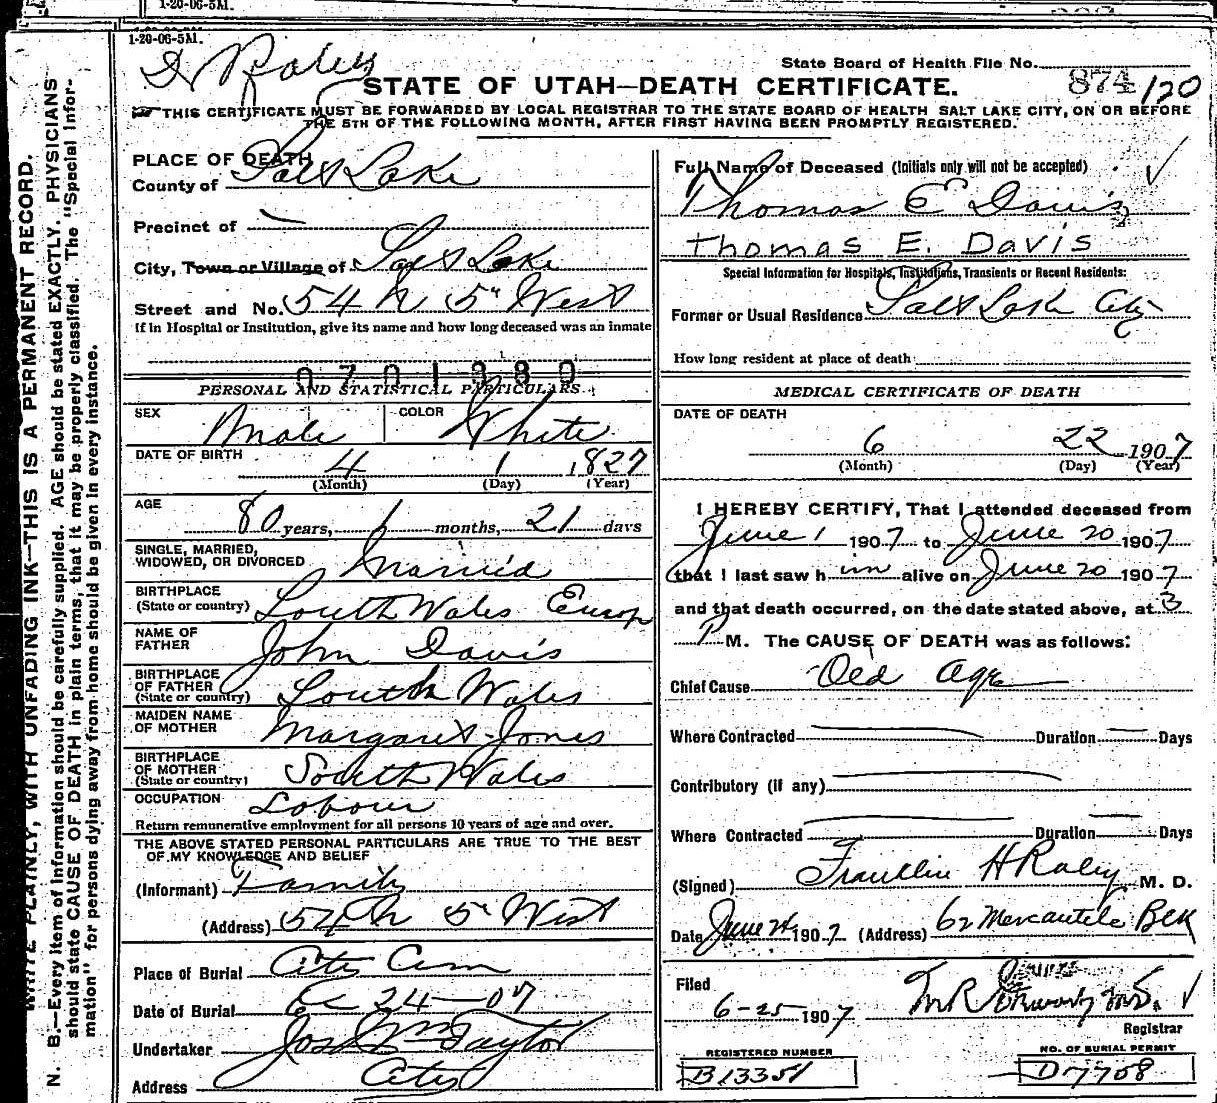 1-20-06-5M.
1-20-06-5M.
State Board of Health File No. 874 / 120
STATE OF UTAH—DEATH CERTIFICATE.
THIS CERTIFICATE MUST BE FORWARDED BY LOCAL REGISTRAR TO THE STATE BOARD OF HEALTH SALT LAKE CITY, ON OR BEFORE
THE 5TH OF THE FOLLOWING MONTH, AFTER FIRST HAVING BEEN PROMPTLY REGISTERED.
WRITE PLAINLY, WITH UNFADING INK—THIS IS A PERMANENT RECORD.
N. B.—Every item of information should be carefully supplied. AGE should be stated EXACTLY. PHYSICIANS
should state CAUSE OF DEATH in plain terms, that it may be properly classified. The "Special Infor-
mation" for persons dying away from home should be given in every instance.
PLACE OF DEATH
County of Salt Lake
Precinct of —
City, Town or Village of Salt Lake
Street and No. 54 N 5" West
If in Hospital or Institution, give its name and how long deceased was an inmate
0701380
PERSONAL AND STATISTICAL PARTICULARS.
SEX Male COLOR White
DATE OF BIRTH 4 1 1827
(Month) (Day) (Year)
AGE 80 years, months, 21 days
SINGLE, MARRIED,
WIDOWED, OR DIVORCED Married
BIRTHPLACE
(State or country) South Wales Europ
NAME OF
FATHER John Davis
BIRTHPLACE
OF FATHER
(State or country) South Wales
MAIDEN NAME
OF MOTHER Margaret Jones
BIRTHPLACE
OF MOTHER
(State or country) South Wales
OCCUPATION Labour
Return remunerative employment for all persons 10 years of age and over.
THE ABOVE STATED PERSONAL PARTICULARS ARE TRUE TO THE BEST
OF MY KNOWLEDGE AND BELIEF
(Informant) Family
(Address) 54 N 5" West
Place of Burial City Cem
Date of Burial 24—07
Undertaker Jos Wm Taylor
Address City
Full Name of Deceased (Initials only will not be accepted)
Thomas E Davis
Thomas E. Davis
Special Information for Hospitals, Institutions, Transients or Recent Residents:
Former or Usual Residence Salt Lake City
How long resident at place of death
MEDICAL CERTIFICATE OF DEATH
DATE OF DEATH
6 22 1907
(Month) (Day) (Year)
I HEREBY CERTIFY, That I attended deceased from
June 1 1907 to June 20 1907
that I last saw him alive on June 20 1907
and that death occurred, on the date stated above, at 3
P M. The CAUSE OF DEATH was as follows:
Chief Cause Old Age
Where Contracted — Duration — Days
Contributory (if any) —
Where Contracted — Duration — Days
(Signed) Franklin H Raley M. D.
Date June 24 1907 (Address) 62 Mercantile Blk
Filed
6-25 1907
Registrar
REGISTERED NUMBER
B13351
NO. OF BURIAL PERMIT
D7708